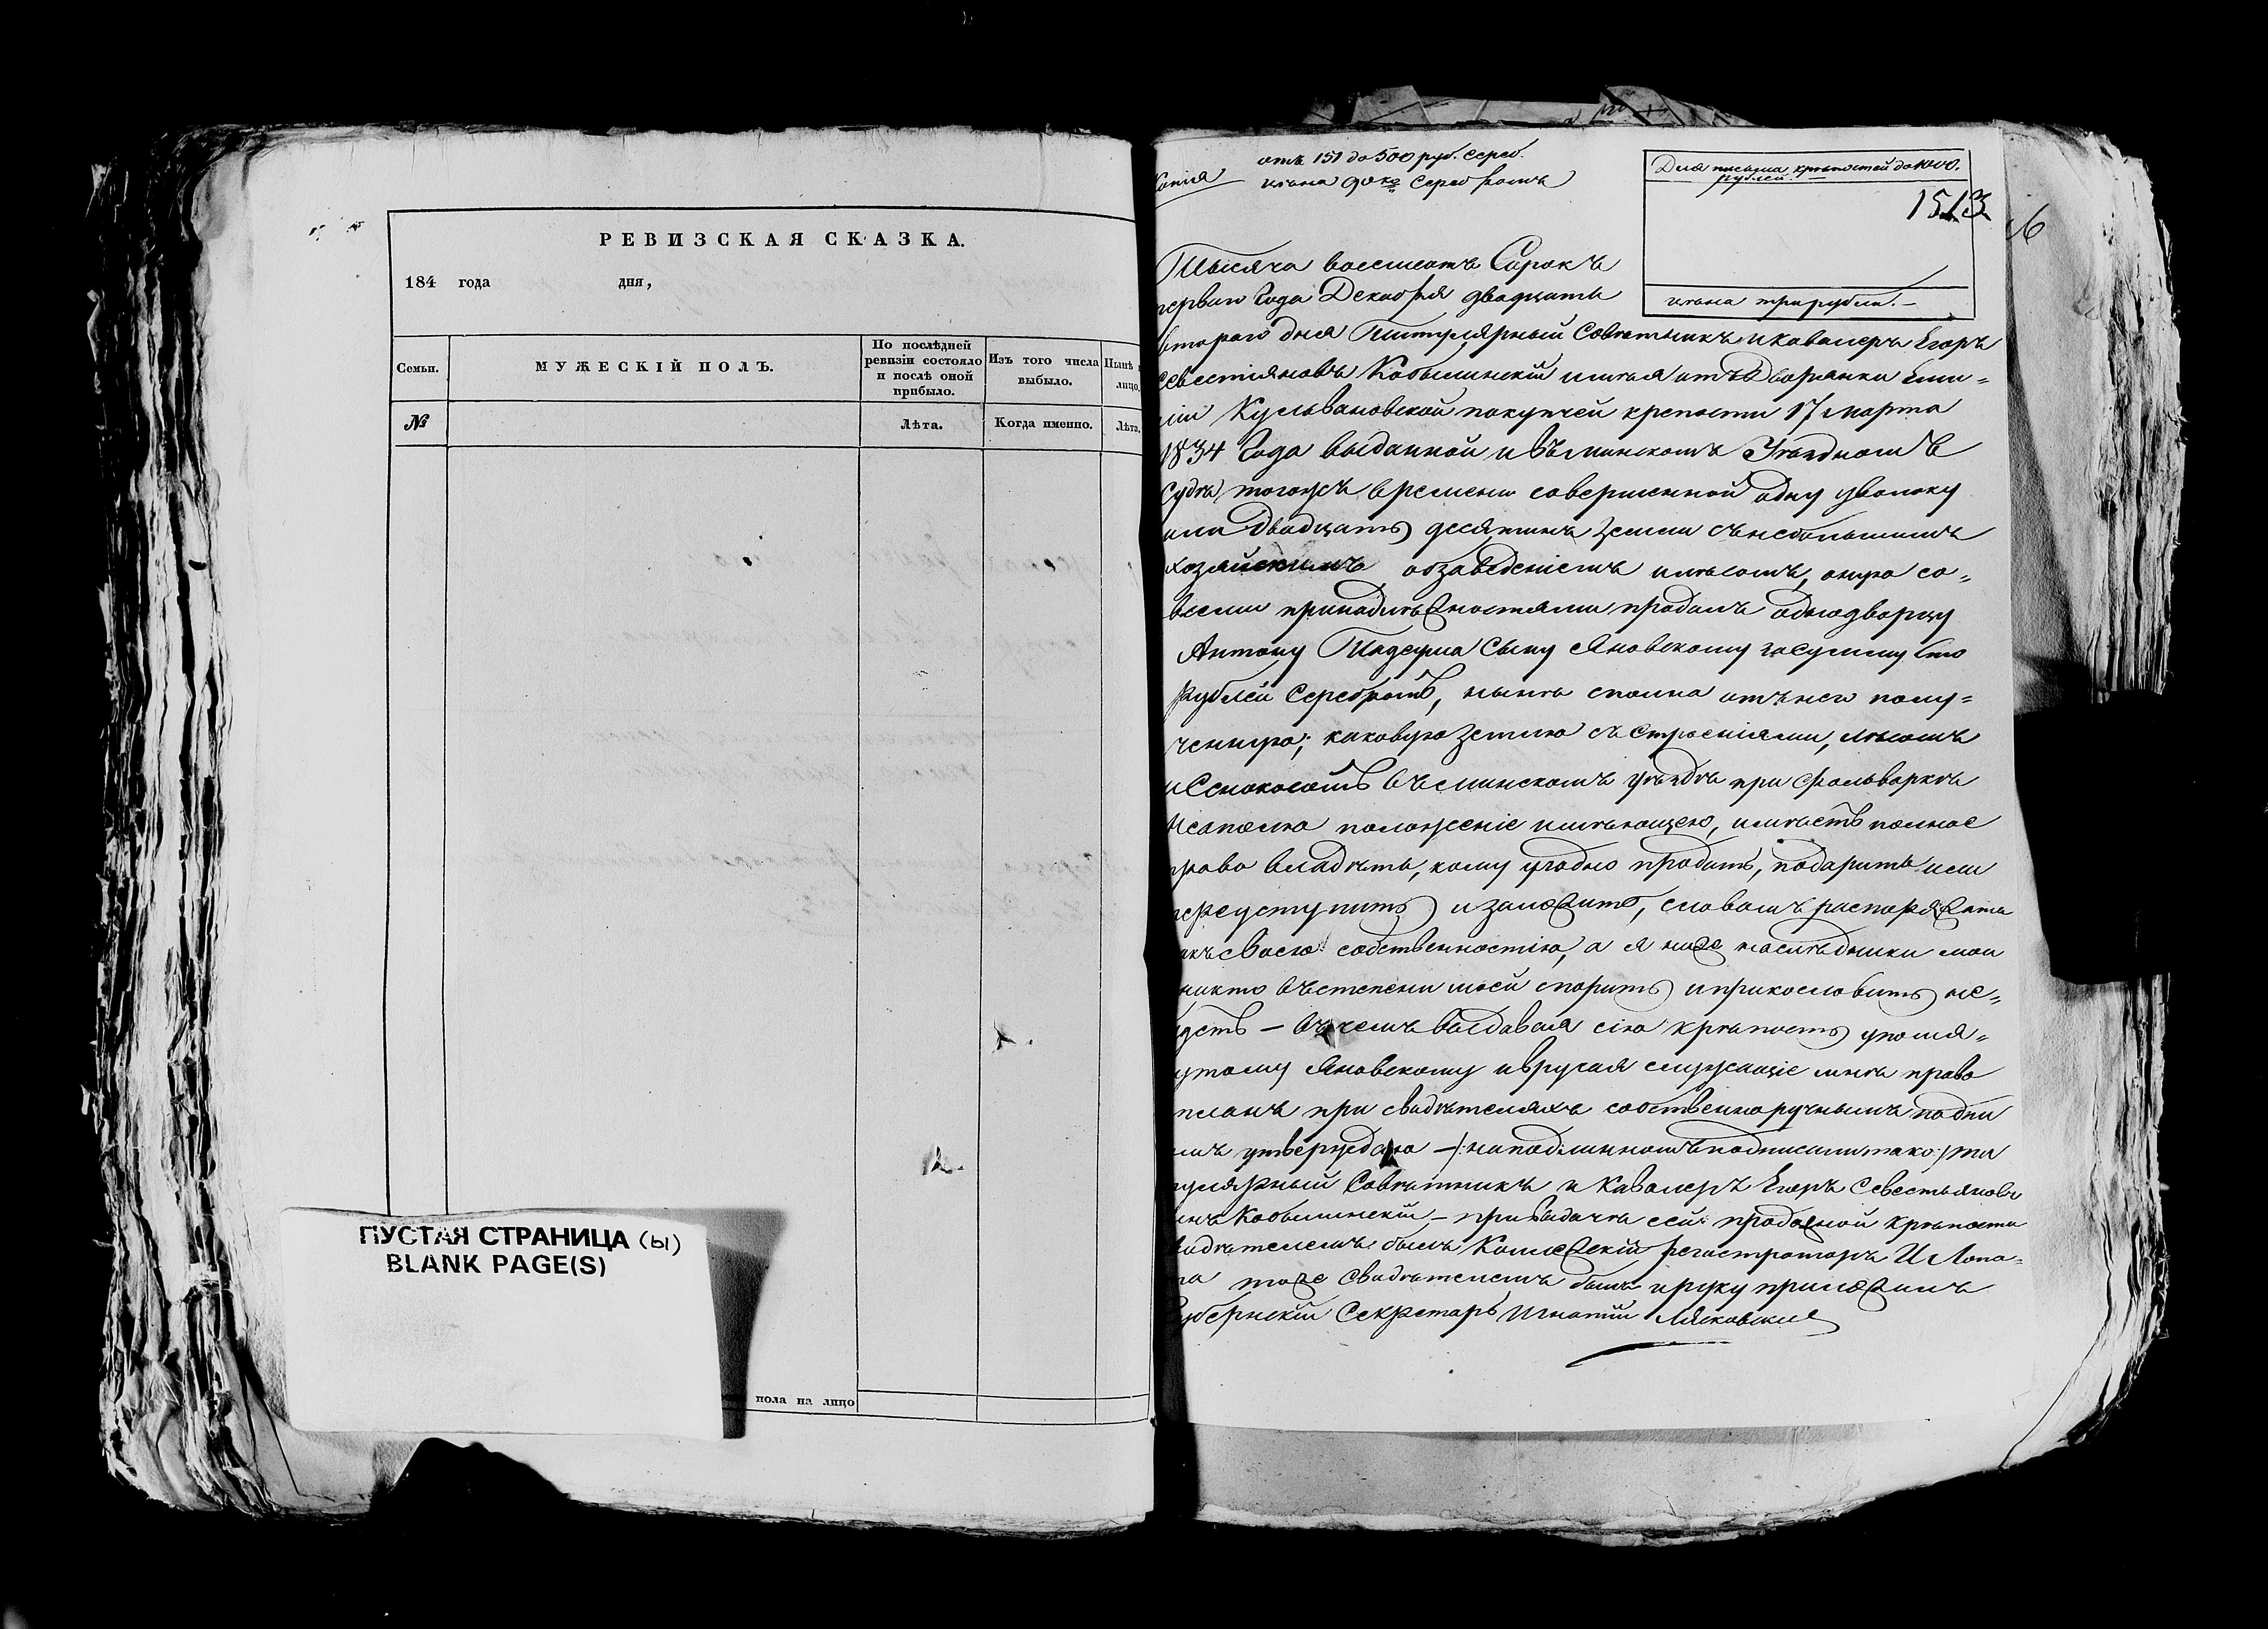 РЕВИЗСКАЯ СКАЗКА.
184 года дня,
Семьи.
МУЖЕСКІЙ ПОЛЪ.
По послѣдней
ревизіи состояло
и послѣ оной
прибыло.
Изъ того числа
выбыло.
Нынѣ
лицо
№
Лѣта.
Когда именно.
Лѣта.
ПУСТАЯ СТРАНИЦА (Ы)
BLANK PAGE(S)
пола на лицо
Копія
отъ 151 до 500 руб. сереб.
цѣна 90 ко серебромъ
Для письма крѣпостей до 1000.
рублей.
1513
6
цѣна три рубли.
Тысяча восемсотъ Сорокъ
перваго Года Декабря двадцать
втораго дня Титулярный Совѣтникъ и кавалеръ Егоръ
Севестіяновъ Кобылинскій имѣя отъ Дворянки Эми=
ліи Кульвановской покупчей крепости 17 марта
1834 Года выданной и въ минскомъ Уѣздномъ
Судѣ тогожъ времени совершенной одну уволоку
или Двадцать десятинъ земли съ небольшимъ
хозяйскимъ обзаведеніемъ и лѣсомъ, оную со=
всеми принадлежностями продалъ однодворцу
Антону Тадеуша Сыну Яновскому за сумму сто
рублей Серебромъ, нынѣ сполна отъ него полу=
ченную; каковую землю съ строеніями, лѣсомъ
и Сенокосомъ въ минскомъ уѣздѣ при фольваркѣ
положеніе имѣющею, имѣетъ полное
право владѣть, кому угодно продать, подарить или
переуступить и заложить, словомъ распоряжать
какъ своею собственностію, а я ниже наслѣдники мои
никто въ степени моей спорить и прикословить не=
будетъ — въ чемъ выдавая сію крѣпость упомя=
нутому Яновскому и вручая служащіе мнѣ право
и планъ при свидѣтеляхъ собственноручнымъ подпи
сомъ утверждаю — /: на подлинномъ подписали тако :/ Ти
тулярный Совѣтникъ и Кавалеръ Егоръ Севестьяновъ
сынъ Кобылинскій, — при выдачѣ сей продажной крѣпости
свидѣтелемъ былъ Колежскій регистраторъ И Лопа=
та тоже Свидѣтелемъ былъ и руку приложилъ
Губернскій Секретарь Игнатій Лясковскій